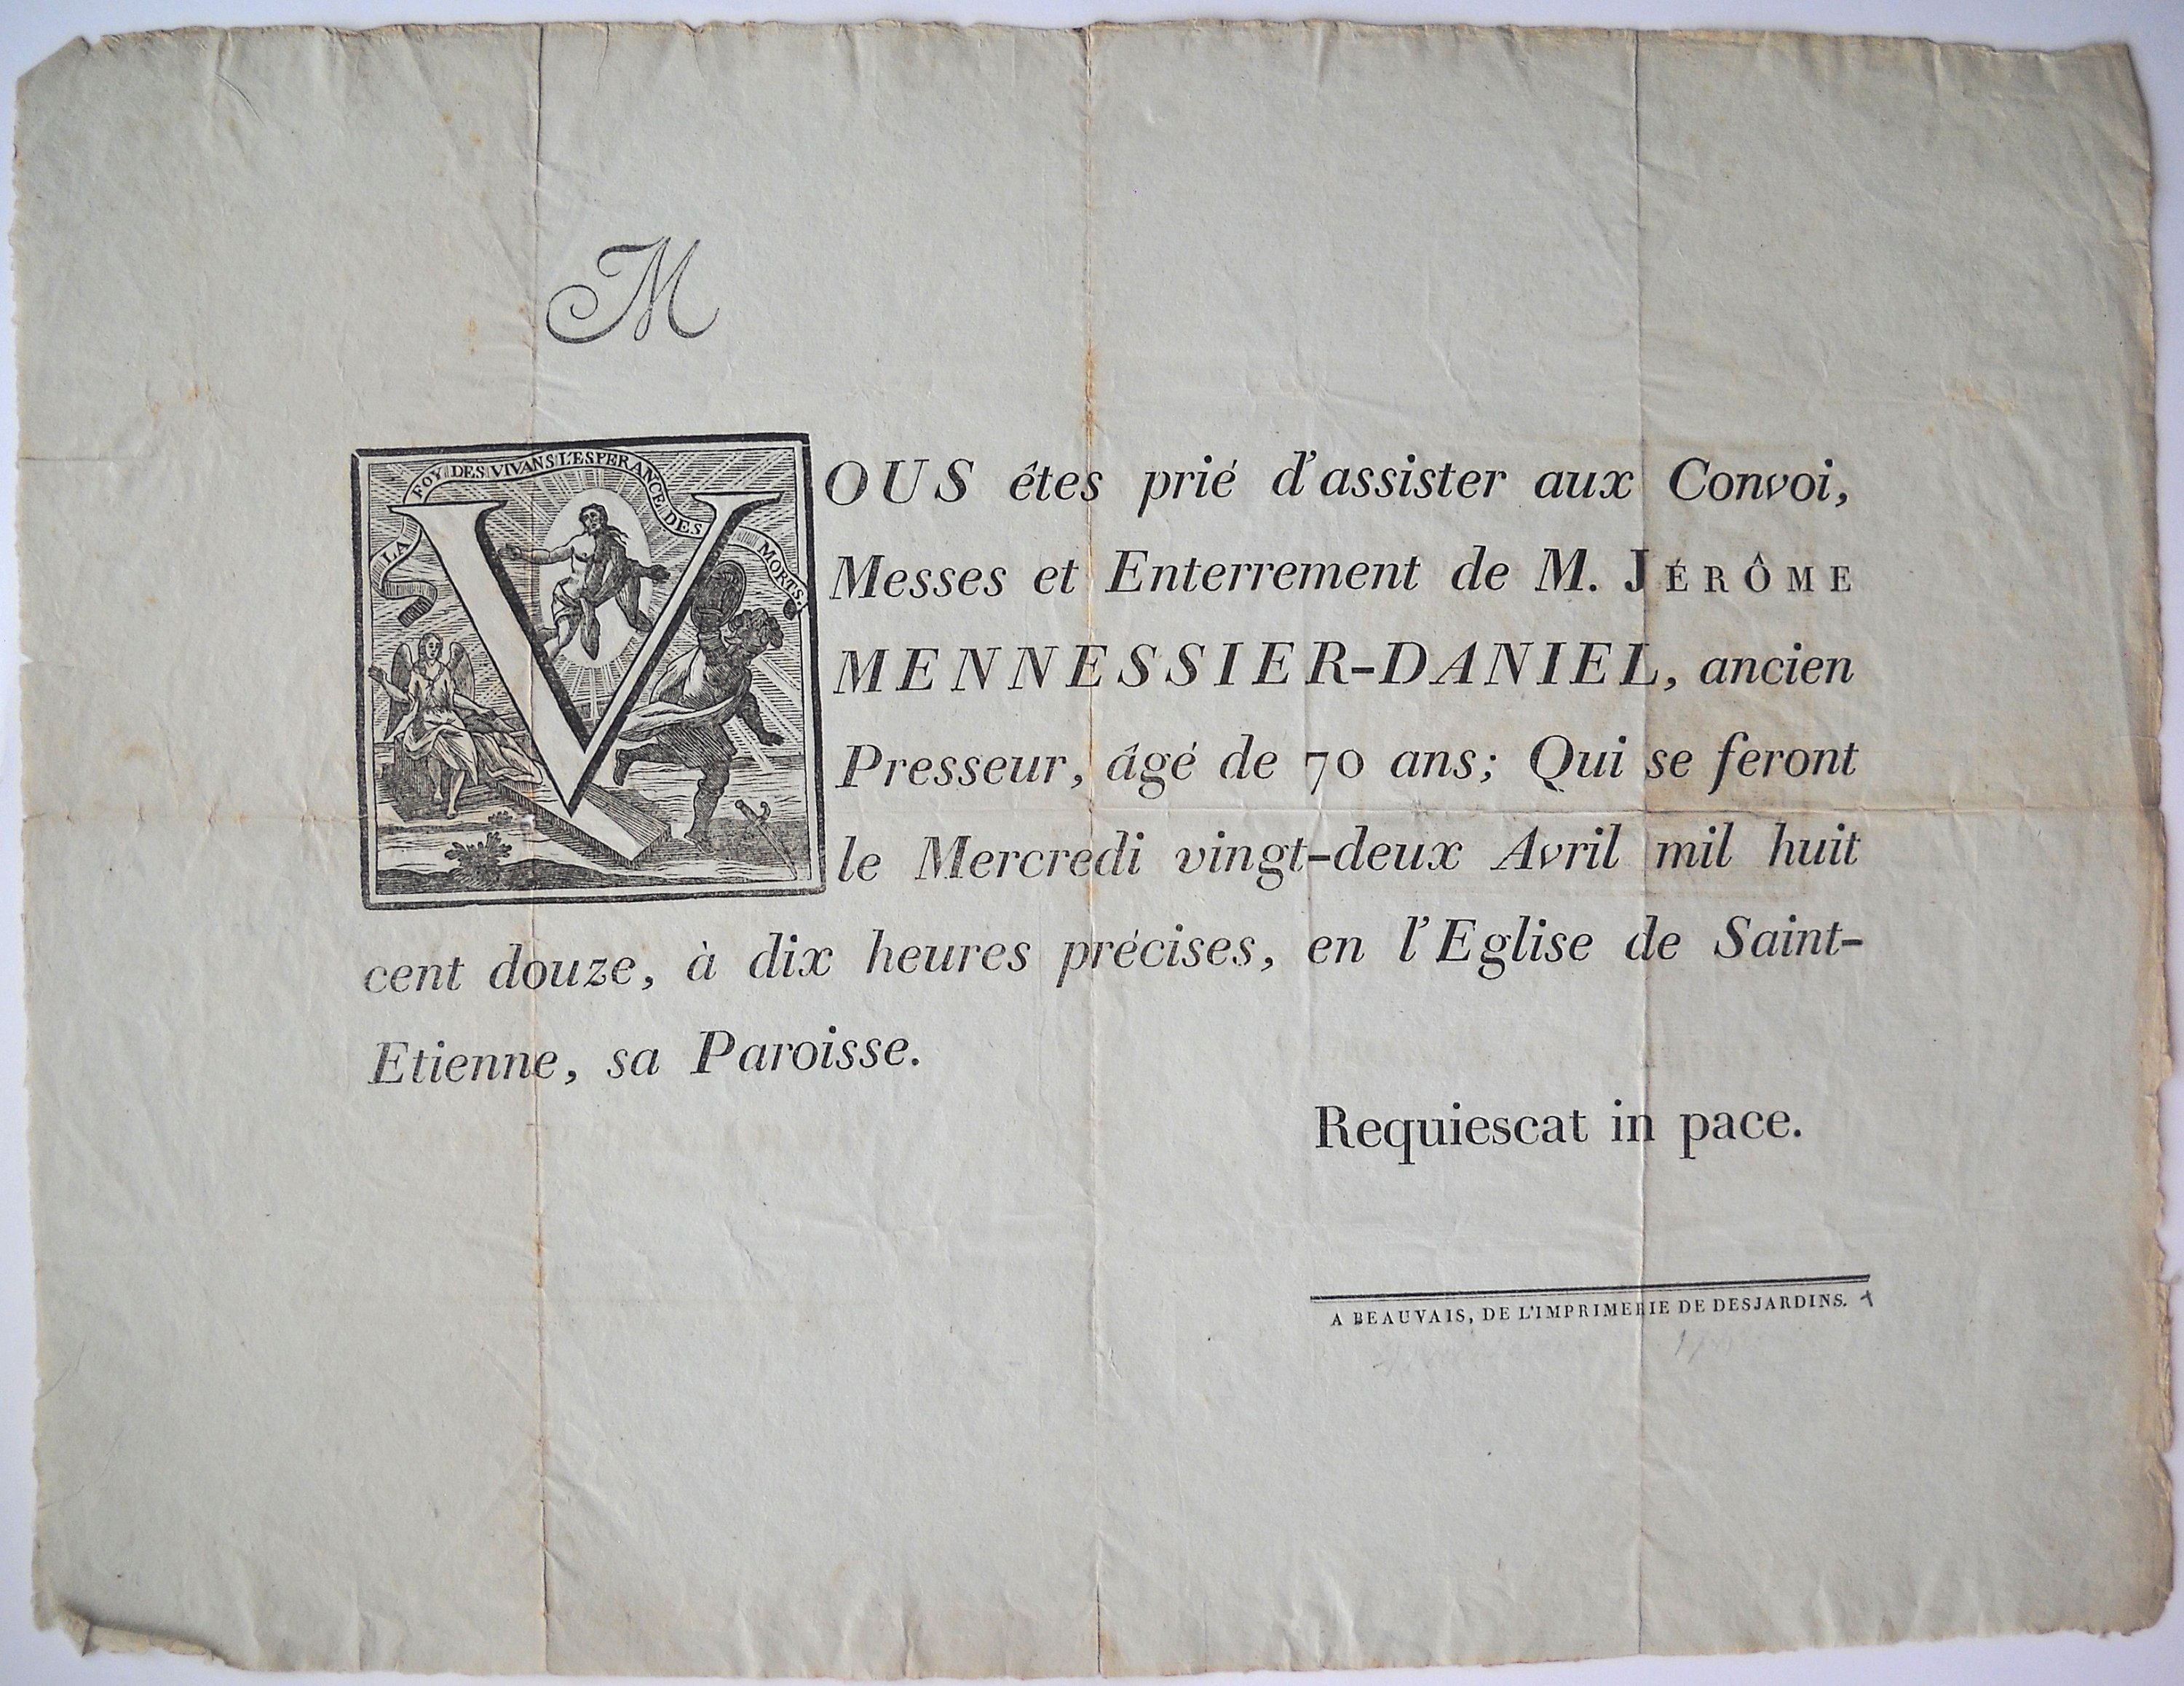 M
LA FOY DES VIVANS L'ESPERANCE DES MORTS.
VOUS êtes prié d'assister aux Convoi,
Messes et Enterrement de M. JÉRÔME
MENNESSIER-DANIEL, ancien
Presseur, âgé de 70 ans; Qui se feront
le Mercredi vingt-deux Avril mil huit
cent douze, à dix heures précises, en l'Eglise de Saint-
Etienne, sa Paroisse.
Requiescat in pace.
A BEAUVAIS, DE L'IMPRIMERIE DE DESJARDINS.